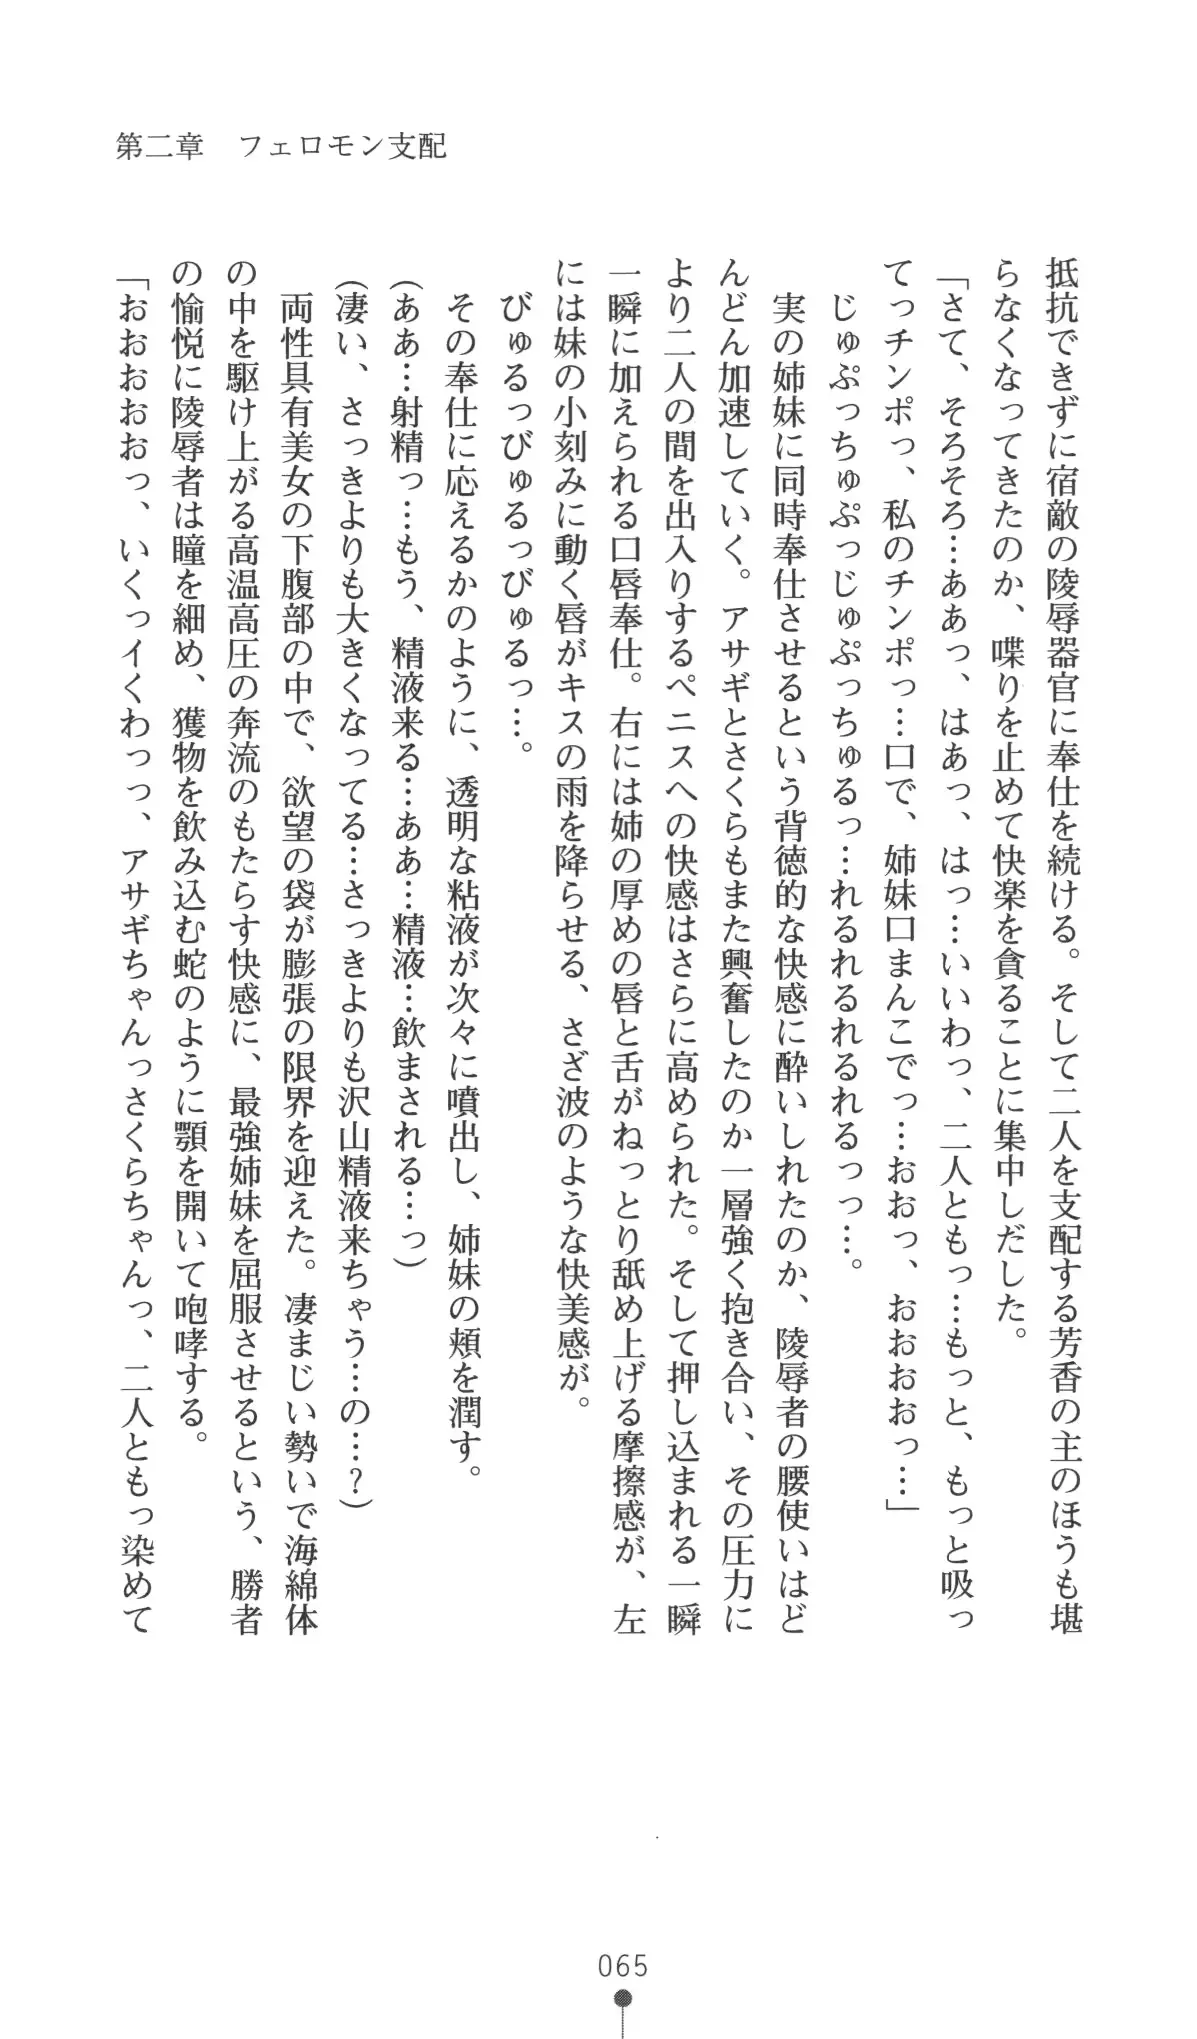 第二章　フェロモン支配
抵抗できずに宿敵の陵辱器官に奉仕を続ける。そして二人を支配する芳香の主のほうも堪
らなくなってきたのか、喋りを止めて快楽を貪ることに集中しだした。
「さて、そろそろ…ああっ、はあっ、はっ…いいわっ、二人ともっ…もっと、もっと吸っ
てっチンポっ、私のチンポっ…口で、姉妹口まんこでっ…おおっ、おおおおっ…」
じゅぷっちゅぷっじゅぷっちゅるっ…れるれるれるれるっっ…。
実の姉妹に同時奉仕させるという背徳的な快感に酔いしれたのか、陵辱者の腰使いはど
んどん加速していく。アサギとさくらもまた興奮したのか一層強く抱き合い、その圧力に
より二人の間を出入りするペニスへの快感はさらに高められた。そして押し込まれる一瞬
一瞬に加えられる口唇奉仕。右には姉の厚めの唇と舌がねっとり舐め上げる摩擦感が、左
には妹の小刻みに動く唇がキスの雨を降らせる、さざ波のような快美感が。
びゅるっびゅるっびゅるっ…。
その奉仕に応えるかのように、透明な粘液が次々に噴出し、姉妹の頬を潤す。
(ああ…射精っ…もう、精液来る…ああ…精液…飲まされる…っ)
(凄い、さっきよりも大きくなってる…さっきよりも沢山精液来ちゃう…の…?)
両性具有美女の下腹部の中で、欲望の袋が膨張の限界を迎えた。凄まじい勢いで海綿体
の中を駆け上がる高温高圧の奔流のもたらす快感に、最強姉妹を屈服させるという、勝者
の愉悦に陵辱者は瞳を細め、獲物を飲み込む蛇のように顎を開いて咆哮する。
「おおおおおっ、いくっイくわっっ、アサギちゃんっさくらちゃんっ、二人ともっ染めて
065